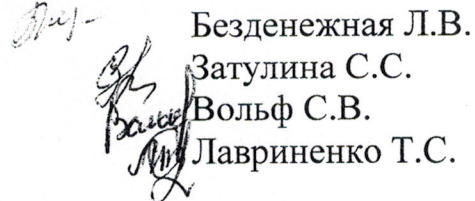 Безденежная Л.В.
Затулина С.С.
Вольф С.В.
Лавриненко Т.С.